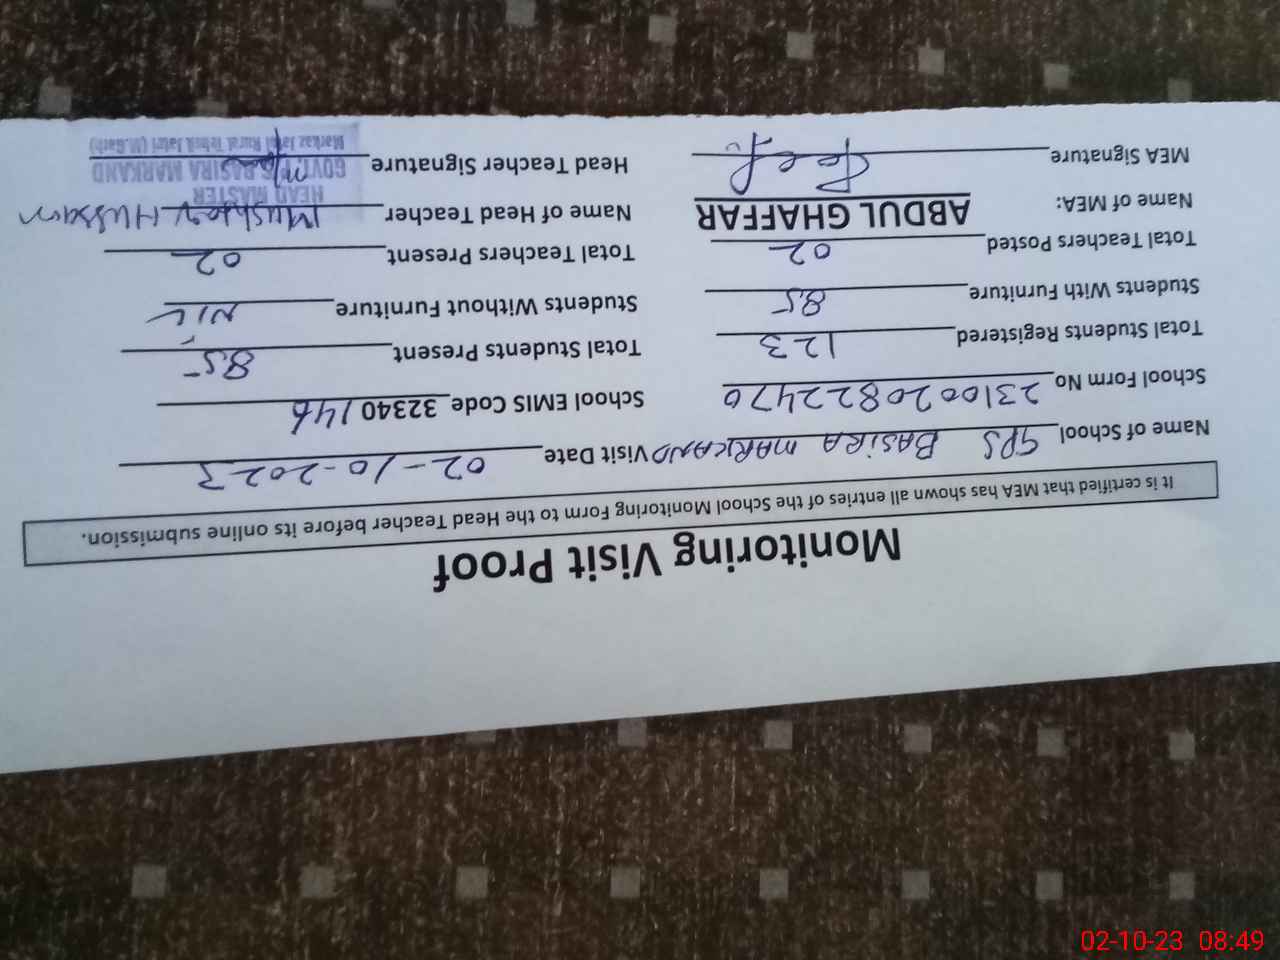 Monitoring Visit Proof
It is certified that MEA has shown all entries of the School Monitoring Form to the Head Teacher before its online submission.
Name of School GPS BASIRA MARKAND Visit Date 02-10-2023
School Form No 231002082247 0 School EMIS Code 32340146
Total Students Registered 123 Total Students Present 85
Students With Furniture 85 Students Without Furniture NIL
Total Teachers Posted 02 Total Teachers Present 02
Name of MEA: ABDUL GHAFFAR Name of Head Teacher Mushtaq Hussain
MEA Signature Head Teacher Signature
HEAD MASTER
GOVT. P/S BASIRA MARKAND
Markaz Jatoi Rural Tehsil Jatoi (M.Garh)
02-10-23 08:49